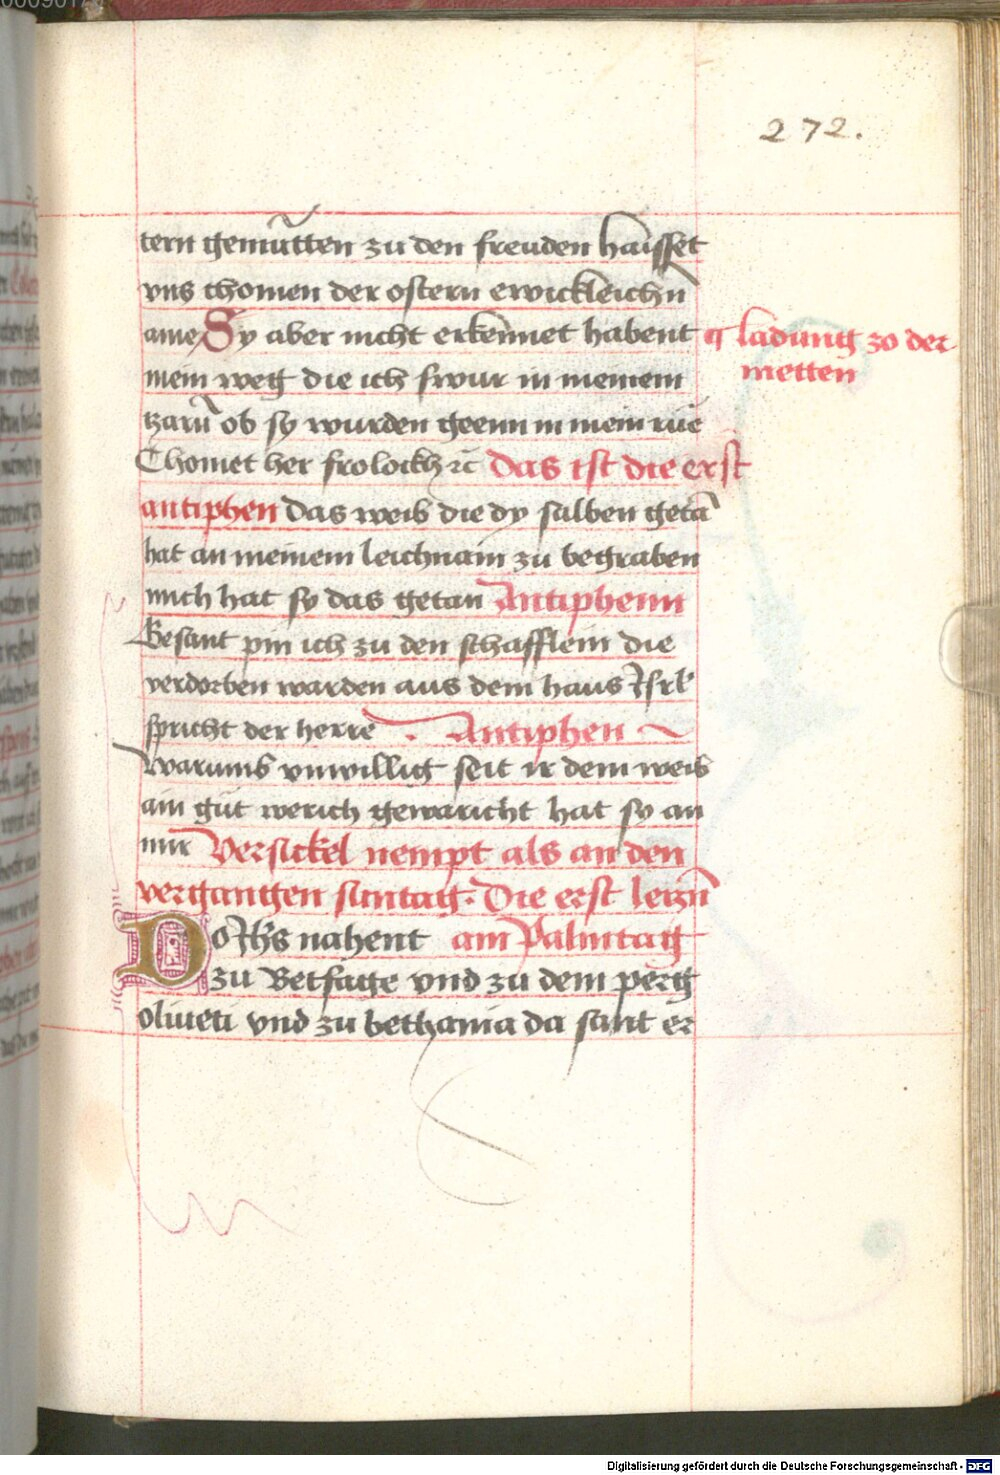 272.
tern gemütten zu den freuden haisset
vns chomen der ostern ewickleichn̄
ame Sy aber nicht erkennet habent
¶ ladung zo der
metten
mein weg die ich swur in meinem
zarn̄ ob sy wurden geenn in mein rue
Chomet her frolockh ꝛc das ist die erst
antiphen Das weib die dy salben getā
hat an meinem leichnam zu begraben
mich hat sy das getan Antiphenn
Gesant pin ich zu den schafflein die
verdorben warden aus dem haus Isrl
spricht der herre . Antiphen
Warumb vnwillig seit ir dem weib
ain güt werich gewaricht hat sy an
mir Versickel nempt als an den
vergangen suntag. Die erst leczn̄
Do Jhs nahent am Palmtag
zu Betfage vnd zu dem perg
oliueti vnd zu bethania da sant er
Digitalisierung gefördert durch die Deutsche Forschungsgemeinschaft - DFG